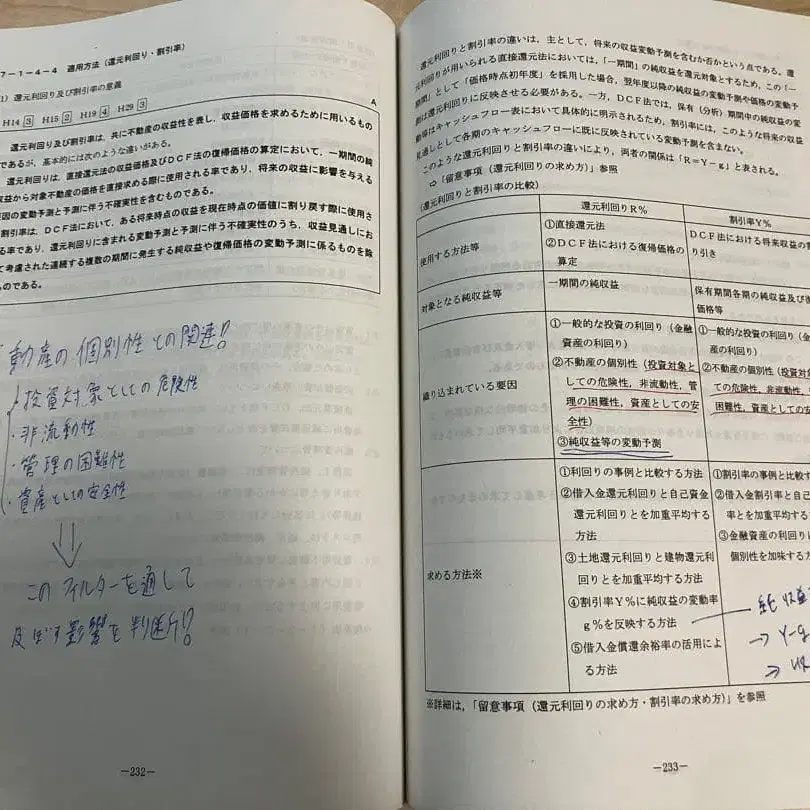 7－1－4－4　適用方法（還元利回り・割引率）
1）還元利回り及び割引率の意義
H14 3　H15 2　H19 4　H29 3
A
還元利回り及び割引率は，共に不動産の収益性を表し，収益価格を求めるために用いるもの
であるが，基本的には次のような違いがある。
還元利回りは，直接還元法の収益価格及びＤＣＦ法の復帰価格の算定において，一期間の純
収益から対象不動産の価格を直接求める際に使用される率であり，将来の収益に影響を与える
要因の変動予測と予測に伴う不確実性を含むものである。
割引率は，ＤＣＦ法において，ある将来時点の収益を現在時点の価値に割り戻す際に使用さ
る率であり，還元利回りに含まれる変動予測と予測に伴う不確実性のうち，収益見通しにお
て考慮された連続する複数の期間に発生する純収益や復帰価格の変動予測に係るものを除
ものである。
動産の個別性との関連!?
投資対象としての危険性
・非流動性
・管理の困難性
・資産としての安全性
このフィルターを通して
及ぼす影響を判断!?
－232－
還元利回りと割引率の違いは，主として，将来の収益変動予測を含むか否かという点である。還
元利回りが用いられる直接還元法においては，「一期間」の純収益を還元対象とするため，この「一
期間」として「価格時点初年度」を採用した場合，翌年度以降の純収益の変動予測や価格の変動予
測は還元利回りに反映させる必要がある。一方，ＤＣＦ法では，保有（分析）期間中の純収益の変
動等はキャッシュフロー表において具体的に明示されるため，割引率には，このような将来の収益
見通しとして各期のキャッシュフローに既に反映されている変動予測は含まない。
このような還元利回りと割引率の違いにより，両者の関係は「Ｒ＝Ｙ－ｇ」と表される。
⇨「留意事項（還元利回りの求め方）」参照
（還元利回りと割引率の比較）
還元利回りR％
割引率Y％
使用する方法等
①直接還元法
②ＤＣＦ法における復帰価格の
算定
ＤＣＦ法における将来収益の割
り引き
対象となる純収益等
一期間の純収益
保有期間各期の純収益及び復
価格等
織り込まれている要因
①一般的な投資の利回り（金融
資産の利回り）
②不動産の個別性（投資対象と
しての危険性，非流動性，管
理の困難性，資産としての安
全性）
③純収益等の変動予測
①一般的な投資の利回り（金
産の利回り）
②不動産の個別性（投資対
ての危険性，非流動性，
困難性，資産としての安
求める方法※
①利回りの事例と比較する方法
②借入金還元利回りと自己資金
還元利回りとを加重平均する
方法
③土地還元利回りと建物還元利
回りとを加重平均する方法
④割引率Y％に純収益の変動率
g％を反映する方法
⑤借入金償還余裕率の活用によ
る方法
①割引率の事例と比較す
②借入金割引率と自己
率とを加重平均する
③金融資産の利回りに
個別性を加味する方
純収益
→ Y-g
※詳細は，「留意事項（還元利回りの求め方・割引率の求め方）」を参照
－233－